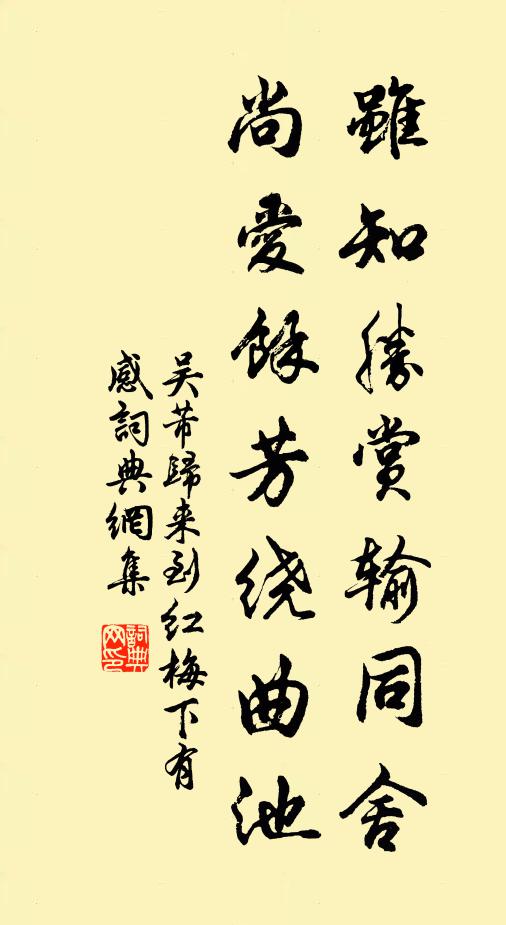 雖知勝賞输同舍
尚愛餘芳绕曲池
吴芾歸来到红梅下有
感詞典網集
詞典
网印